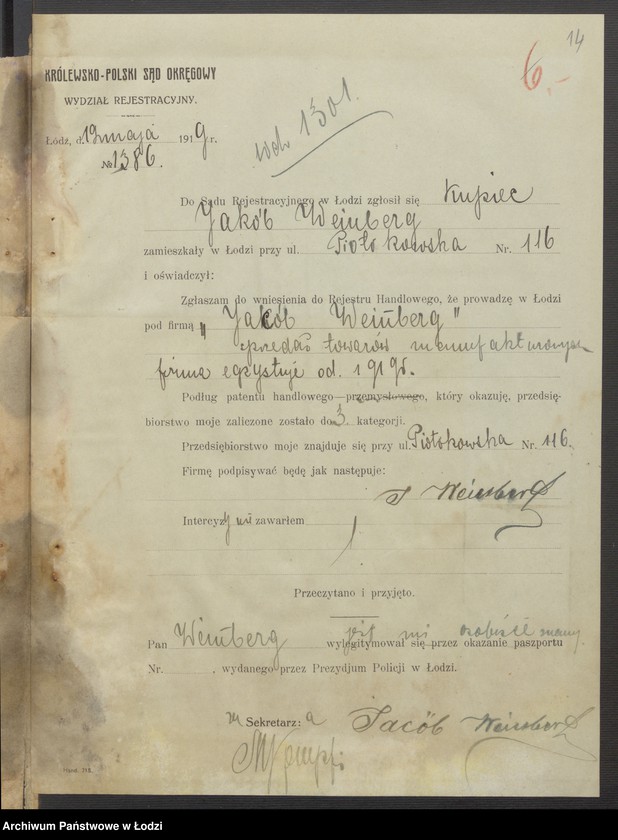 14
6.-
KRÓLEWSKO-POLSKI SĄD OKRĘGOWY
WYDZIAŁ REJESTRACYJNY.
Łódź, d. 19 maja 1919 r.
№ 1386.
wd. 1301.
Do Sądu Rejestracyjnego w Łodzi zgłosił się Kupiec
Jakób Weinberg
zamieszkały w Łodzi przy ul. Piotrkowska Nr. 116
i oświadczył:
Zgłaszam do wniesienia do Rejestru Handlowego, że prowadzę w Łodzi
pod firmą „Jakób Weinberg"
sprzedaż towarów manufakturowych
firma egzystuje od. 1919r.
Podług patentu handlowego-przemysłowego, który okazuję, przedsię-
biorstwo moje zaliczone zostało do 3 kategorji.
Przedsiębiorstwo moje znajduje się przy ul. Piotrkowska Nr. 116.
Firmę podpisywać będę jak następuje:
J Weinberg
Intercyzy nie zawarłem
Przeczytano i przyjęto.
jest mi osobiście znany.
Pan Weinberg wylegitymował się przez okazanie paszportu
Nr. , wydanego przez Prezydjum Policji w Łodzi.
Sekretarz: Jacób Weinberg
Hand. 218.
Archiwum Państwowe w Łodzi